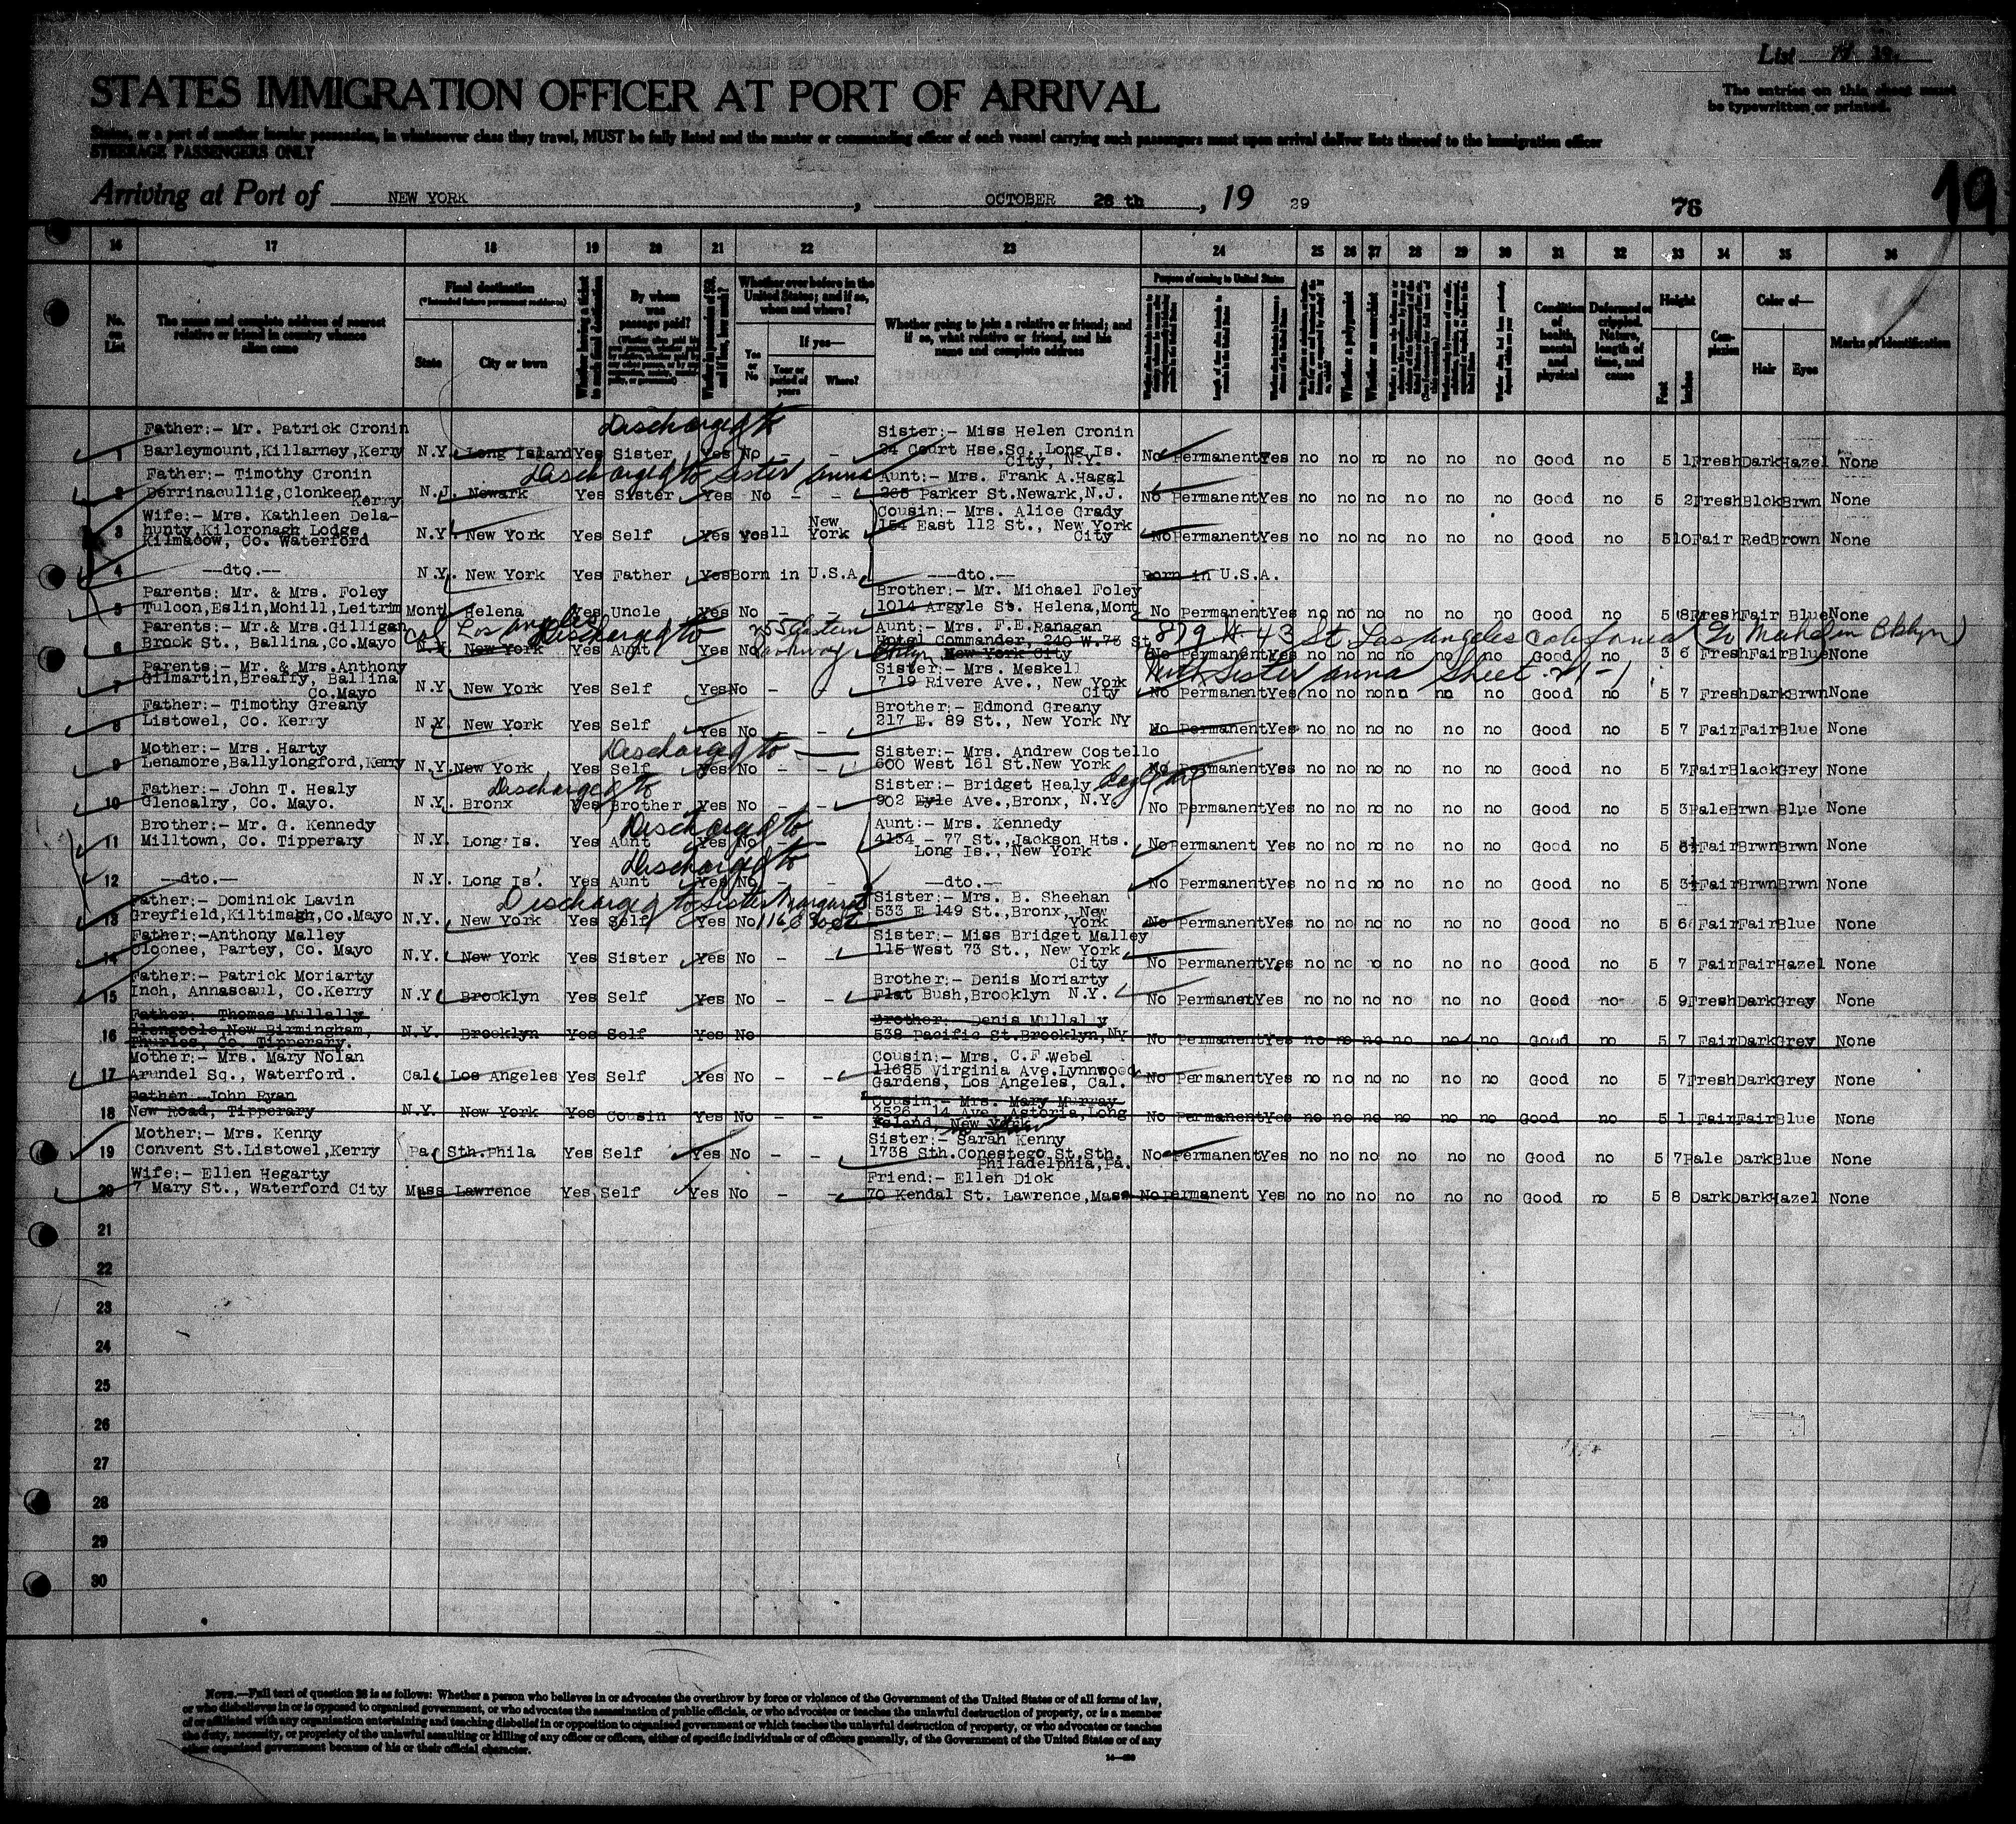 List
STATES IMMIGRATION OFFICER AT PORT OF ARRIVAL
The entries on this sheet must
be typewritten or printed.
States, or a part of another insular possession, in whatsoever class they travel, MUST be fully listed and the master or commanding officer of each vessel carrying such passengers must upon arrival deliver lists thereof to the immigration officer
STEERAGE PASSENGERS ONLY
Arriving at Port of NEW YORK, OCTOBER 28 th, 19 29
76
19
16 17 18 19 20 21 22 23 24 25 26 27 28 29 30 31 32 33 34 35 36
No. on List
The name and complete address of nearest relative or friend in country whence alien came
Final destination
(*Intended future permanent residence)
State
City or town
By whom was passage paid?
Whether ever before in the United States; and if so, when and where?
Yes or No
If yes—
Year or period of years
Where?
Whether going to join a relative or friend; and if so, what relative or friend, and his name and complete address
Purpose of coming to United States
Whether a polygamist
Whether an anarchist
Condition of health, mental and physical
Deformed or crippled. Nature, length of time, and cause
Height
Feet
Inches
Complexion
Color of—
Hair
Eyes
Marks of identification
Discharged to
Father:- Mr. Patrick Cronin Sister:- Miss Helen Cronin
1 Barleymount, Killarney, Kerry N.Y. Long Island Yes Sister Yes No - - 24 Court Hse.Sq., Long Is. City, N.Y. No Permanent Yes no no no no no no Good no 5 1 Fresh Dark Hazel None
Discharged to Sister Anna
Father:- Timothy Cronin Aunt:- Mrs. Frank A.Hagal
2 Derrinacullig, Clonkeen Kerry N.J. Newark Yes Sister Yes No - - 265 Parker St.Newark, N.J. No Permanent Yes no no no no no no Good no 5 2 Fresh Blck Brwn None
Wife:- Mrs. Kathleen Dela- Cousin:- Mrs. Alice Grady
3 hunty, Kilcronagh Lodge, N.Y. New York Yes Self Yes yes 11 New York 154 East 112 St., New York City No Permanent Yes no no no no no no Good no 5 10 Fair Red Brown None
Kilmacow, Co. Waterford
4 --dto.-- N.Y. New York Yes Father Yes Born in U.S.A. --dto.-- Born in U.S.A.
Parents: Mr. & Mrs. Foley Brother:- Mr. Michael Foley
5 Tulcon, Eslin, Mohill, Leitrim Mont. Helena Yes Uncle Yes No - - 1014 Argyle St. Helena, Mont No Permanent Yes no no no no no no Good no 5 8 Fresh Fair Blue None
Cal Los Angeles Discharged to 255 Eastern Parkway
Parents:- Mr.& Mrs.Gilligan Aunt:- Mrs. F.E.Ranagan
6 Brook St., Ballina, Co.Mayo N.Y. New York Yes Aunt Yes No Hotel Commander, 240 W.73 St New York City No Permanent Yes no no no no no no Good no 3 6 Fresh Fair Blue None
879 W 43 St Los Angeles California
With Sister Anna Sheet 21-1
Parents:- Mr. & Mrs.Anthony Sister:- Mrs. Meskell
7 Gilmartin, Breaffy, Ballina Co.Mayo N.Y. New York Yes Self Yes No - 7 19 Rivere Ave., New York City No Permanent Yes no no no no no no Good no 5 7 Fresh Dark Brwn None
Father:- Timothy Greany Brother:- Edmond Greany
8 Listowel, Co. Kerry N.Y. New York Yes Self Yes No - - 217 E. 89 St., New York NY No Permanent Yes no no no no no no Good no 5 7 Fair Fair Blue None
Discharged to
Mother:- Mrs. Harty Sister:- Mrs. Andrew Costello
9 Lenamore, Ballylongford, Kerry N.Y. New York Yes Self Yes No - - 600 West 161 St.New York No Permanent Yes no no no no no no Good no 5 7 Fair Black Grey None
Discharged to
Father:- John T. Healy Sister:- Bridget Healy
10 Glencalry, Co. Mayo. N.Y. Bronx Yes Brother Yes No - - 902 Eyle Ave., Bronx, N.Y. No Permanent Yes no no no no no no Good no 5 3 Pale Brwn Blue None
Discharged to
Brother:- Mr. G. Kennedy Aunt:- Mrs. Kennedy
11 Milltown, Co. Tipperary N.Y. Long Is. Yes Aunt Yes No - 4134 - 77 St., Jackson Hts. Long Is., New York No Permanent Yes no no no no no no Good no 5 Fair Brwn Brwn None
Discharged to
12 --dto.-- N.Y. Long Is. Yes Aunt Yes No - - --dto.-- No Permanent Yes no no no no no no Good no 5 3½ Fair Brwn Brwn None
Discharged to Sister Margaret
Father:- Dominick Lavin Sister:- Mrs. B. Sheehan
13 Greyfield, Kiltimagh, Co.Mayo N.Y. New York Yes Self Yes No 533 E 149 St., Bronx, New York No Permanent Yes no no no no no no Good no 5 6 Fair Fair Blue None
Father:-Anthony Malley Sister:- Miss Bridget Malley
14 Cloonee, Partey, Co. Mayo N.Y. New York Yes Sister Yes No - - 115 West 73 St., New York City No Permanent Yes no no no no no no Good no 5 7 Fair Fair Hazel None
Father:- Patrick Moriarty Brother:- Denis Moriarty
15 Inch, Annascaul, Co.Kerry N.Y. Brooklyn Yes Self Yes No - - Flat Bush, Brooklyn N.Y. No Permanent Yes no no no no no no Good no 5 9 Fresh Dark Grey None
Father:- Thomas Mullally Brother:- Denis Mullally
16 Glengoole, New Birmingham, Thurles, Co. Tipperary. N.Y. Brooklyn Yes Self Yes No 538 Pacific St.Brooklyn, NY No Permanent Yes no no no no no no Good no 5 7 Fair Dark Grey None
Mother:- Mrs. Mary Nolan Cousin:- Mrs. C.F.Webel
17 Arundel Sq., Waterford. Cal. Los Angeles Yes Self Yes No - - 11685 Virginia Ave.Lynnwood Gardens, Los Angeles, Cal. No Permanent Yes no no no no no no Good no 5 7 Fresh Dark Grey None
Father John Ryan Cousin:- Mrs. Mary Murray
18 New Road, Tipperary N.Y. New York Yes Cousin Yes No - - 2526 14 Ave. Astoria, Long Island, New York No Permanent Yes no no no no no no Good no 5 1 Fair Fair Blue None
Mother:- Mrs. Kenny Sister:- Sarah Kenny
19 Convent St.Listowel, Kerry Pa. Sth.Phila Yes Self Yes No - - 1738 Sth.Conestego St.Sth. Philadelphia, Pa. No Permanent Yes no no no no no no Good no 5 7 Pale Dark Blue None
Wife:- Ellen Hegarty Friend:- Ellen Dick
20 7 Mary St., Waterford City Mass Lawrence Yes Self Yes No - - 70 Kendal St. Lawrence, Mass No Permanent Yes no no no no no no Good no 5 8 Dark Dark Hazel None
21
22
23
24
25
26
27
28
29
30
NOTE.—Full text of question 28 is as follows: Whether a person who believes in or advocates the overthrow by force or violence of the Government of the United States or of all forms of law,
or who disbelieves in or is opposed to organized government, or who advocates the assassination of public officials, or who advocates or teaches the unlawful destruction of property, or is a member
of or affiliated with any organization entertaining and teaching disbelief in or opposition to organized government or which teaches the unlawful destruction of property, or who advocates or teaches
the duty, necessity, or propriety of the unlawful assaulting or killing of any officer or officers, either of specific individuals or of officers generally, of the Government of the United States or of any
other organized government because of his or their official character.